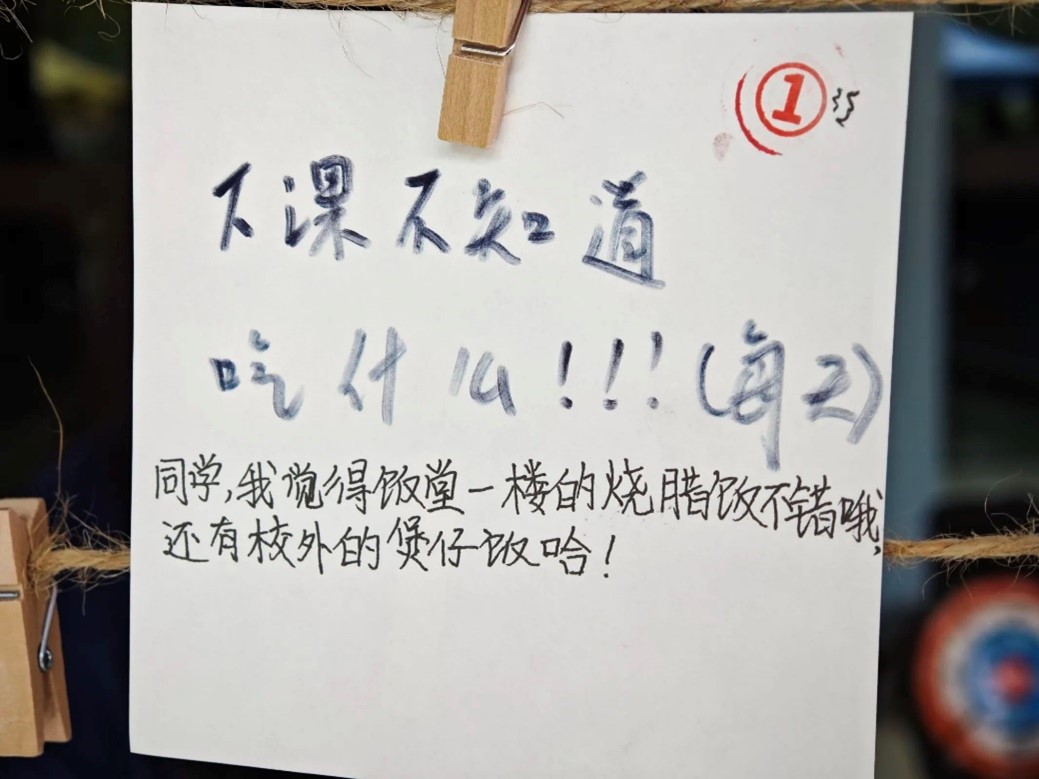 ①
下课不知道
吃什么!!!(每天)
同学,我觉得饭堂一楼的烧腊饭不错哦,
还有校外的煲仔饭哈!